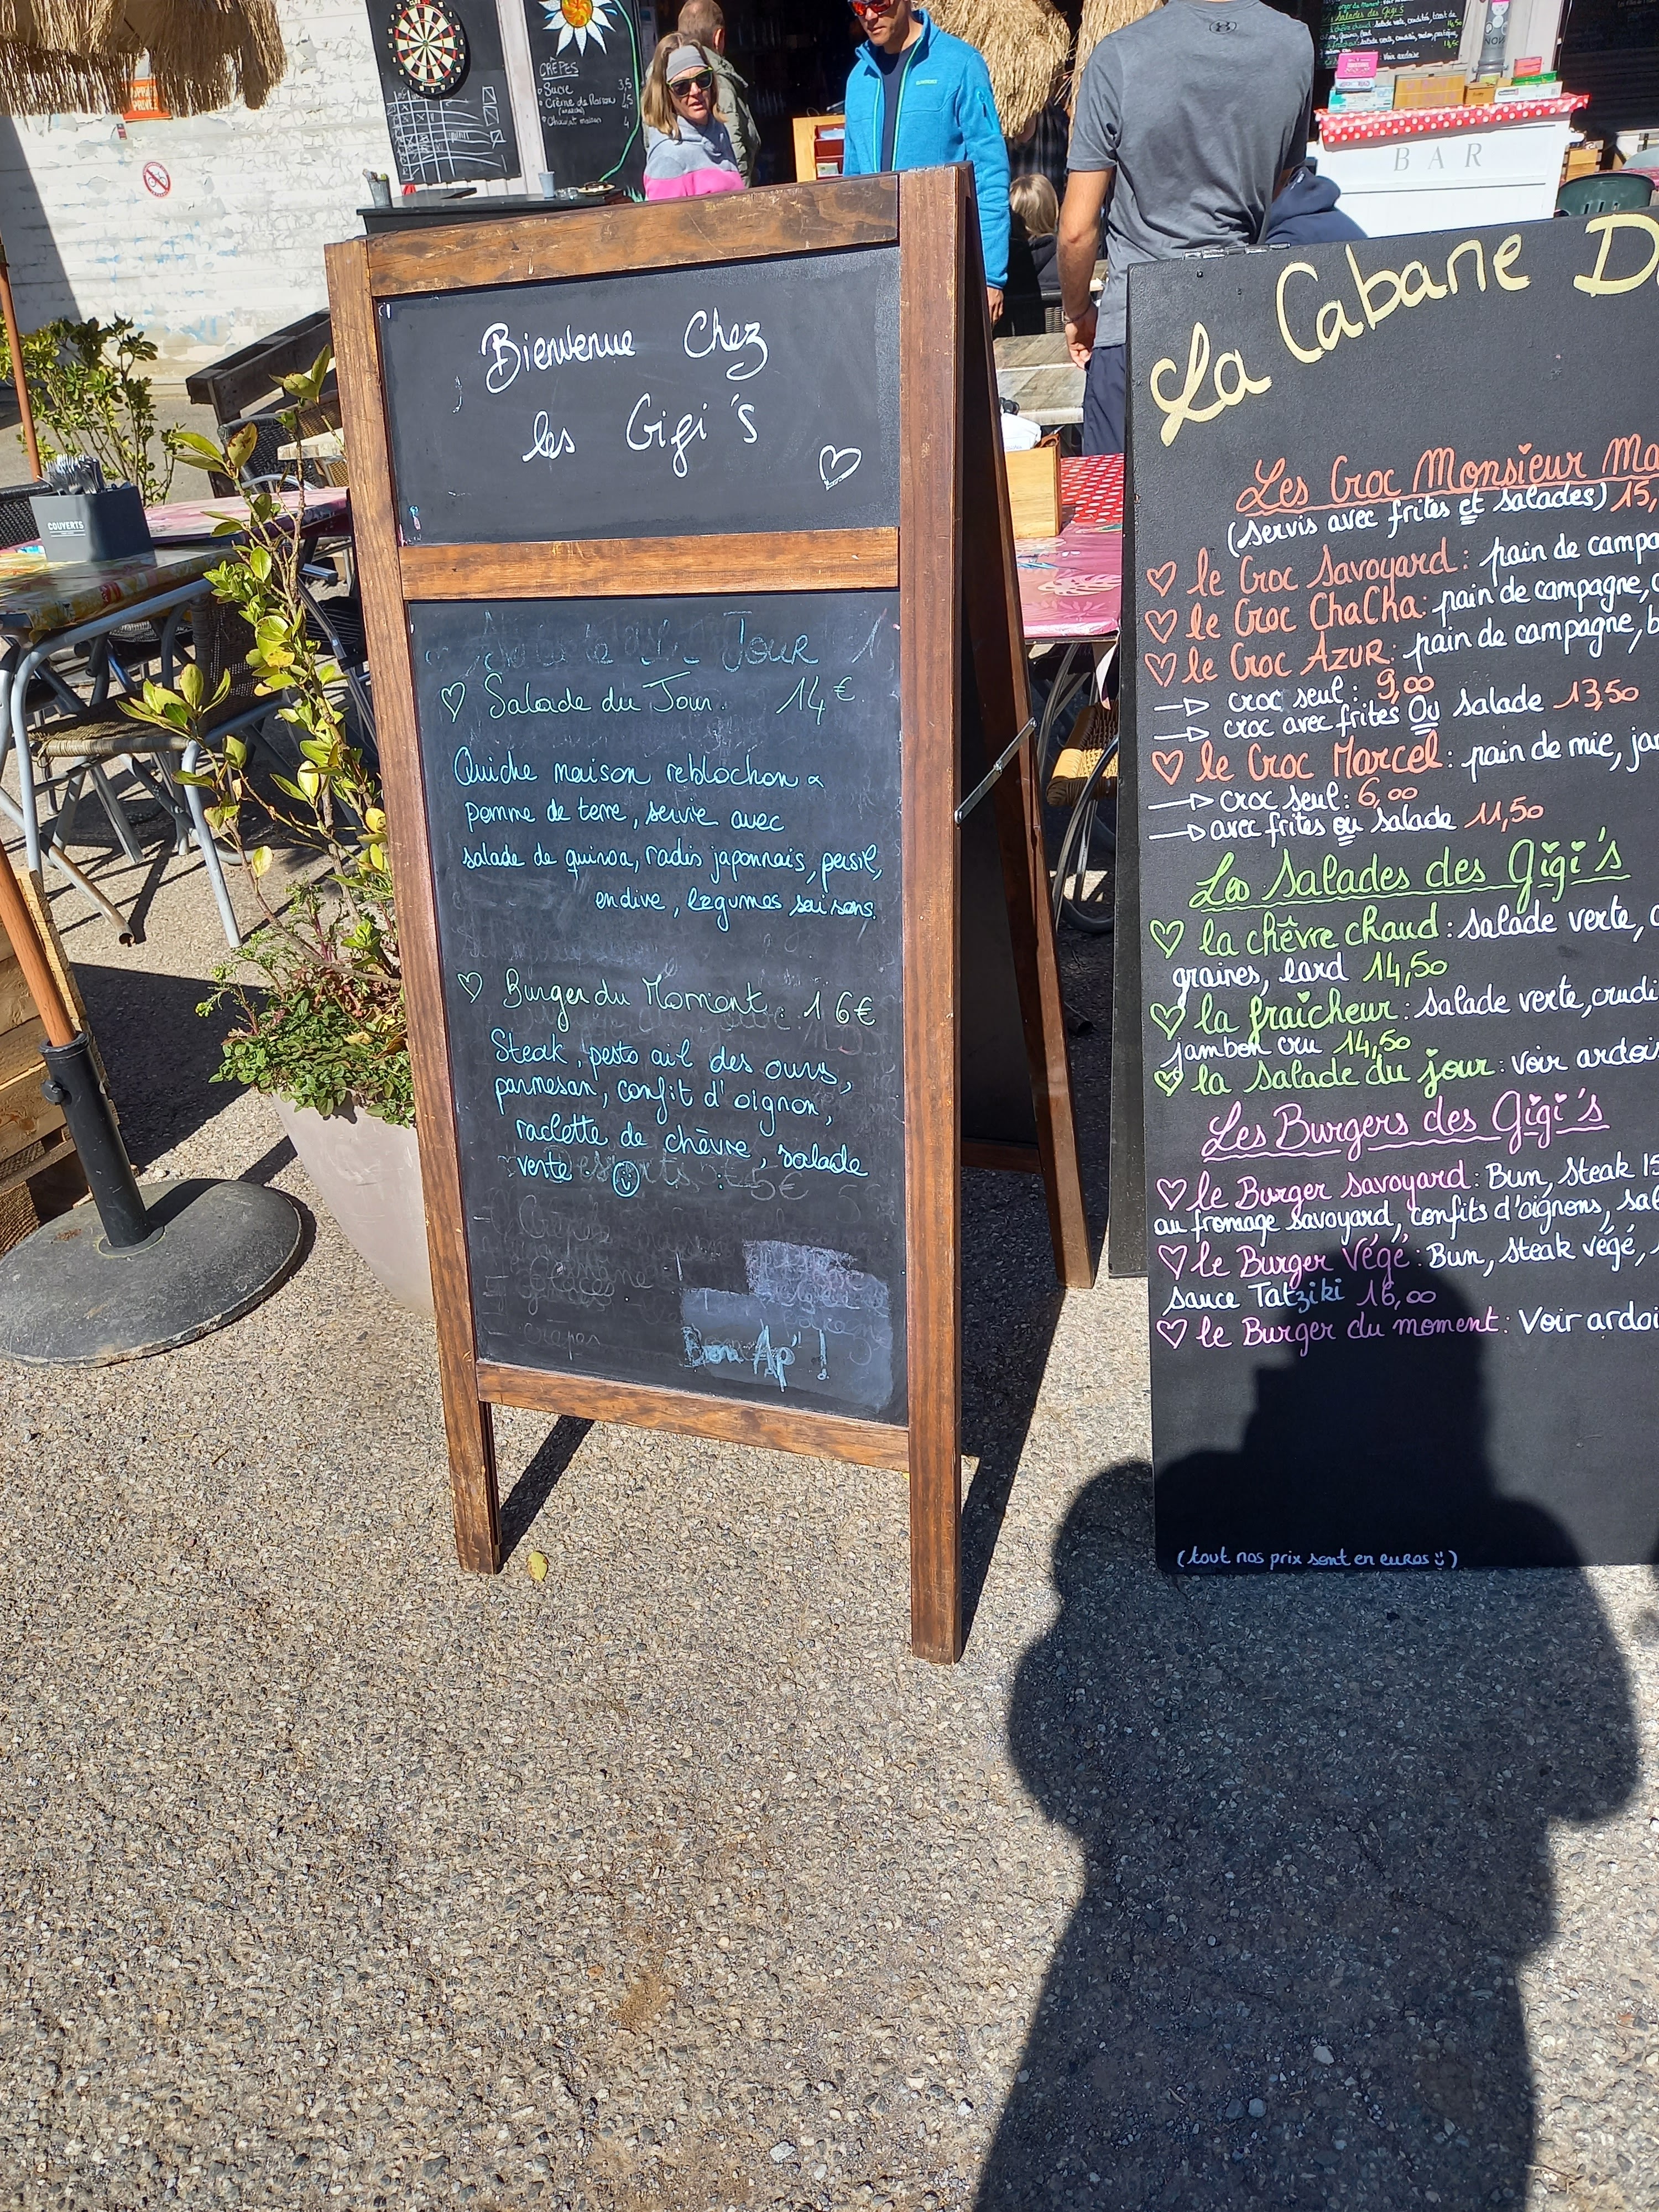 CRÊPES
Sucre 3,5
Crème de Marron 4,5
Chocolat maison 4
BAR
COUVERTS
Bienvenue Chez
les Gigi's
Jour
Salade du Jour. 14€
Quiche maison reblochon &
pomme de terre, servie avec
salade de quinoa, radis japonnais, persil,
endive, légumes saisons.
Burger du Moment : 16€
Steak, pesto ail des ours,
parmesan, confit d'oignon,
raclette de chèvre, salade
verte
Glaces
crêpes
Bon Ap' !
La Cabane D
Les Croc Monsieur Ma
(servis avec frites et salades) 15,
le Croc Savoyard : pain de campa
le Croc ChaCha : pain de campagne,
le Croc AZUR : pain de campagne, b
croc seul : 9,00
croc avec frites Ou salade 13,50
le Croc Marcel : pain de mie, ja
croc seul : 6,00
avec frites ou salade 11,50
Les Salades des Gigi's
la chêvre chaud : salade verte,
graines, lard 14,50
la fraîcheur : salade verte, crudi
jambon cru 14,50
la salade du jour : voir ardois
Les Burgers des Gigi's
le Burger savoyard : Bun, steak 15
au fromage savoyard, confits d'oignons, sal
le Burger Végé : Bun, steak végé,
sauce Tatziki 16,00
le Burger du moment : Voir ardoi
(tout nos prix sont en euros)